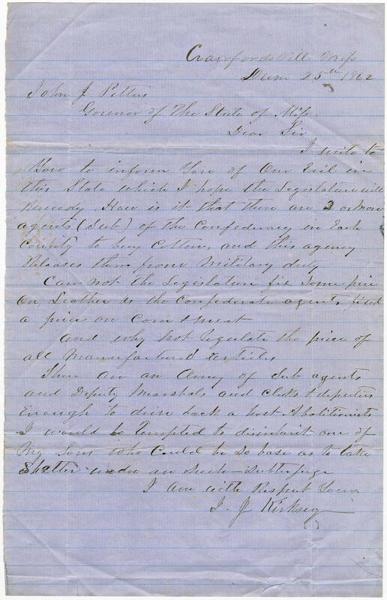 Crawfordsville Miss
25th 1862
John J Pettus
Govenor of The State of Miss
Dear Sir
I write to
You to inform You of One Evil in
this State which I hope the Legislature will
Remedy How is it that there are 2 or more
agents (Sub) of the Confederacy in Each
County to buy Cotton, and this agency
Releases them from Military duty
Can not the Legislature fix Some price
on Leather to the Confederate agent,
a price on Corn & meat
and why not legulate the price of
all Manufactured articles
There are an Army of Sub agents
and Deputy Marshals and clks & deputies
Enough to drive back a host Abolitionists
I would be tempted to disinherit one of
My Sons who Could be So base as to take
Shelter under an Such Subterfuge
I am with Respect Yours
J. J Kirksey